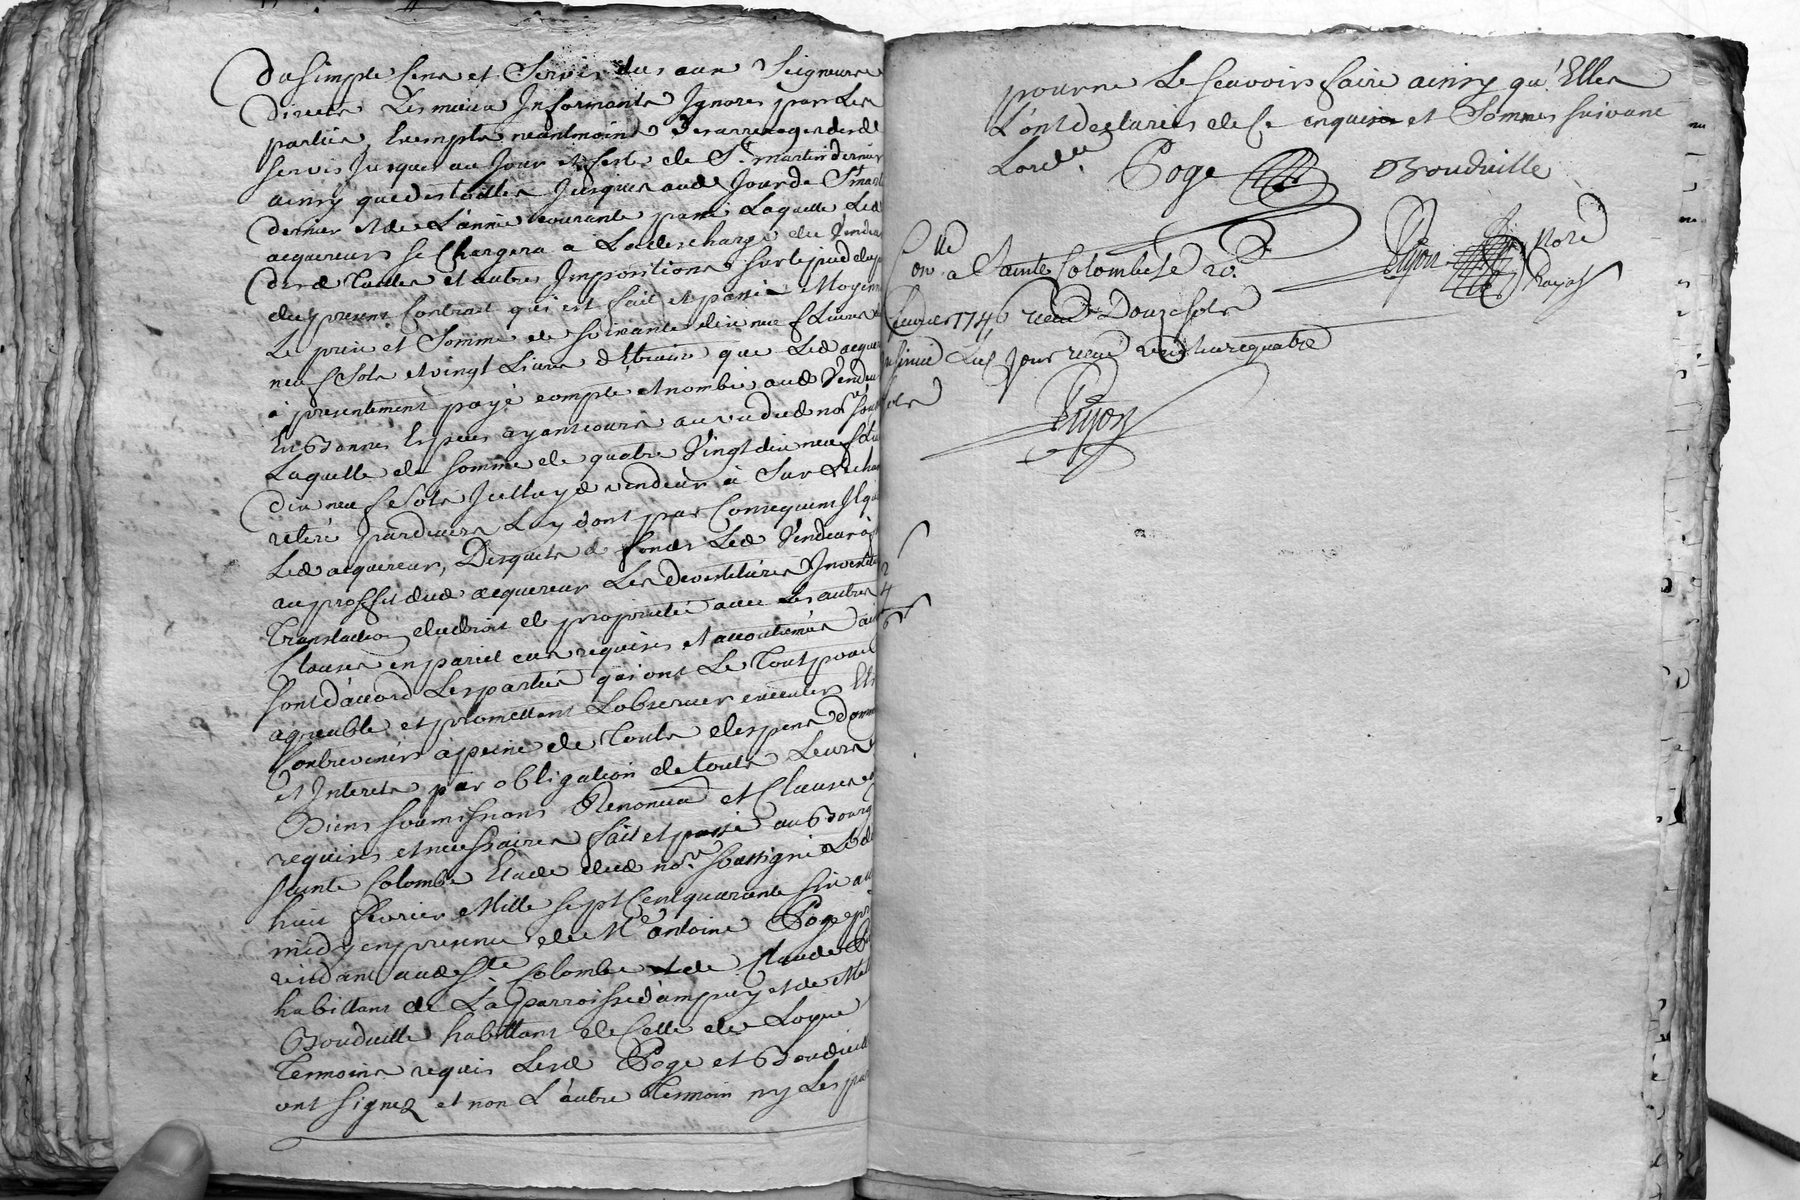 Du simple sens et Servis dus aux Seigneurs
Directs Lesmieux Informants Ignorés par Les
parties, Exempts neantmoins Des arrerages desd
servis Jusques au Jour et feste de St martin dernier
ainsy que des tailles Jusques aud Jour de St mart
dernier et de L'année courante parmi Laquelle Led
acquereur se Chargera a La descharge du Vendeur
desd Tailles et autres Impositions sur le pied du
du present Contrat qui est fait et passé Moyen
Le prix et Somme de soixante dix neuf Livres
neuf Sols et vingt Livres d'Etreine que Led acquer
a presentement payé compté et nombré aud Vendeur
En Bonnes Especes ayant cours au vu dud nore sous
Laquelle de somme de quatre Vingt dix neuf Li
Dix neuf Sols Icelluyd vendeur a Sur Le cham
retiré pardevers Luy dont par Consequent Il qui
Led acquereur, Desquels d fonds Led Vendeur
au proffit dud acquereur Les devestitures Investit
Translation du droit de proprieté avec Les autres
Clauses en pareil cas requises et accoutumés
sont d'accord Les parties qui ont Le Tout pour
agreable et promettent L'observer executer Et
Contrevenir a peine de Touts despens domm
et Interets par obligation de touts Leurs
Biens soumissions Renoncia et Clauses
requises et necessaires fait et passé au Bourg
sainte Colombe Etude dud nore soussigné Le d
huit fevrier Mille sept Cent quarante six au
midy en presence de Mre antoine Poge p
residant aud Ste Colombe et de Claude
habittant de La parroisse d'ampuy et de
Bouduille habittant de Celle de Loyre
Temoins requis Lesd Poge et Bouduill
ont signez et non L'autre Temoin ny Les par
pour ne Le scavoir faire ainsy qu'Elles
L'ont declarées de Ce enquises et Sommes suivant
Lordce. Poge Bouduille
Pijon Nore
Royal
Conllé a Sainte Colombe Le 20e
feuvrier 1746 receu Douze sols
Jour receu vingt quatre
sols
Pijon
2
4
6